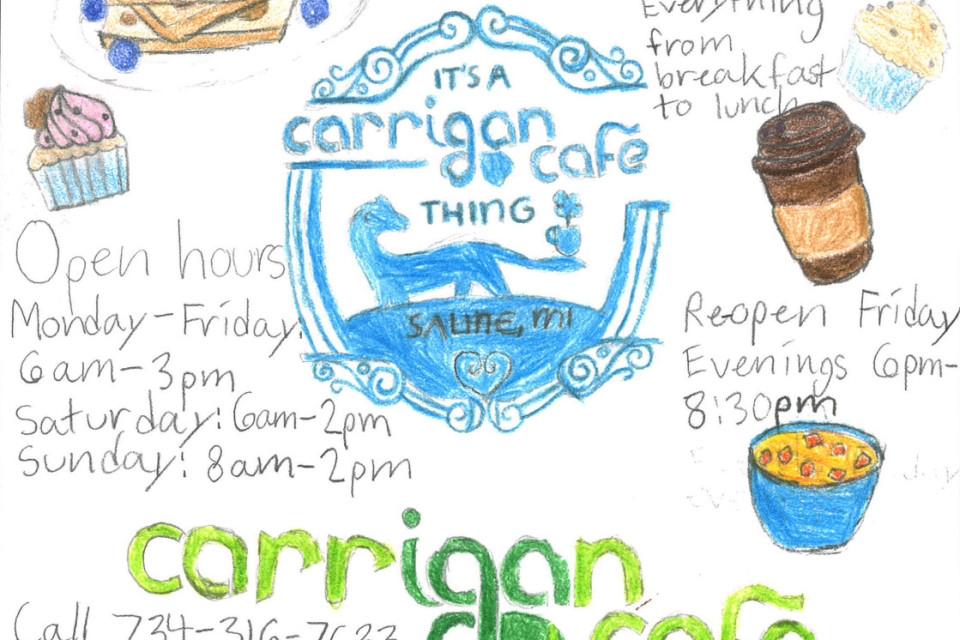 Everything
from
breakfast
to lunch
IT'S A
carrigan
cafe
THING
SALINE, MI
Open hours
Monday-Friday:
6am-3pm
Saturday: 6am-2pm
Sunday: 8am-2pm
Reopen Friday
Evenings 6pm-
8:30pm
carrigan
cafe
Call 734-316-